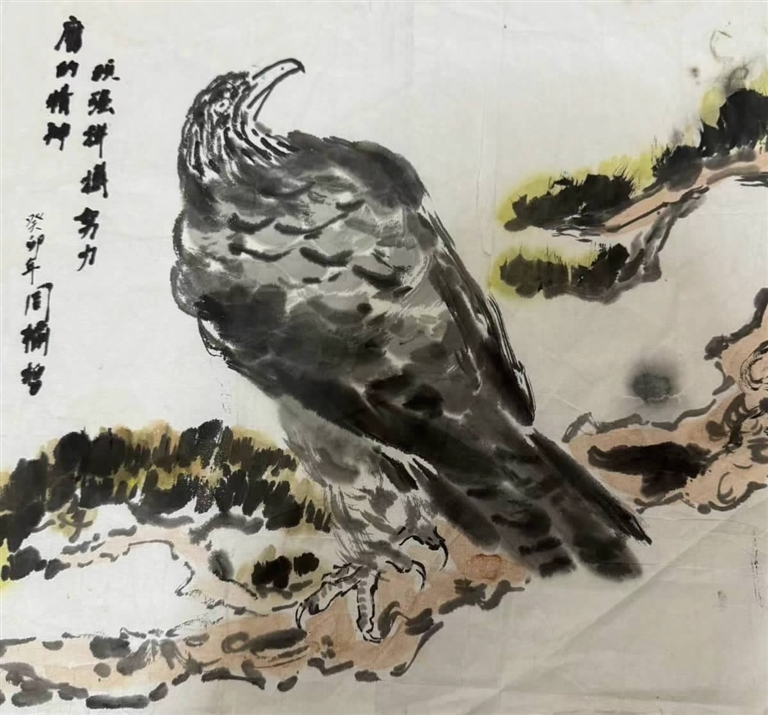 鹰的精神
顽强拼搏努力
癸卯年周楠哲